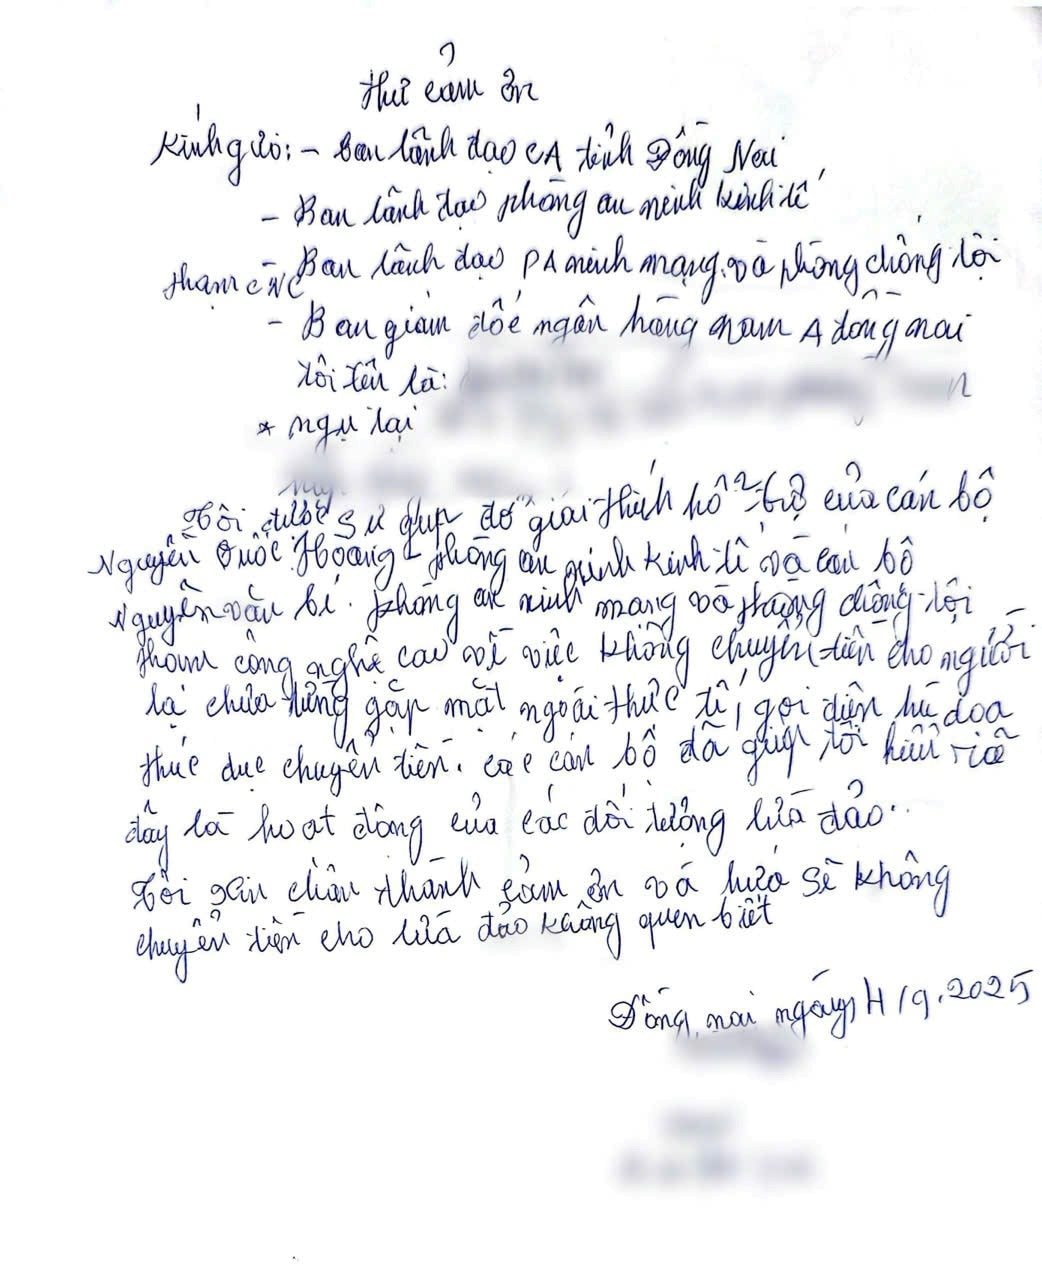 Thư cảm ơn
Kính gửi: - Ban lãnh đạo CA tỉnh Đồng Nai
- Ban lãnh đạo phòng an ninh kinh tế
Ban lãnh đạo PA ninh mạng và phòng chống tội
phạm CNC
- Ban giám đốc ngân hàng Nam A đồng nai
tôi tên là:
* ngụ tại
Tôi được sự giúp đỡ giải thích hỗ trợ của cán bộ
Nguyễn Quốc Hoàng - phòng an ninh kinh tế và cán bộ
Nguyễn văn bé. phòng an ninh mạng và phòng chống tội
phạm công nghệ cao về việc không chuyển tiền cho người
lạ chưa từng gặp mặt ngoài thực tế, gọi điện hù dọa
thúc dục chuyển tiền. các cán bộ đã giúp tôi hiểu rõ
đây là hoạt động của các đối tượng lừa đảo..
Tôi xin chân thành cảm ơn và hứa sẽ không
chuyển tiền cho lừa đảo không quen biết
Đồng nai ngày 4/9.2025